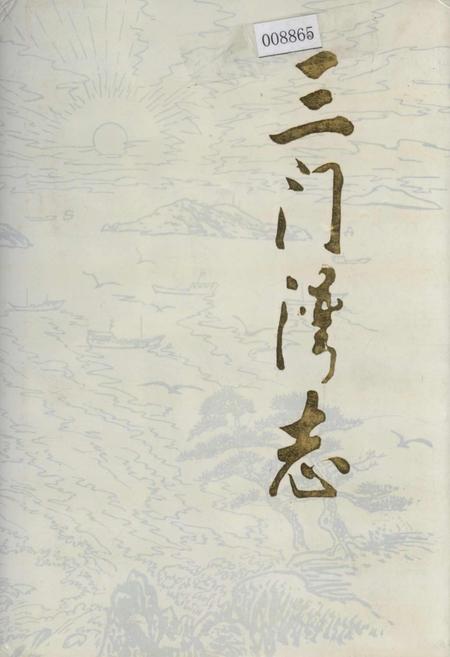 008865
三门湾志